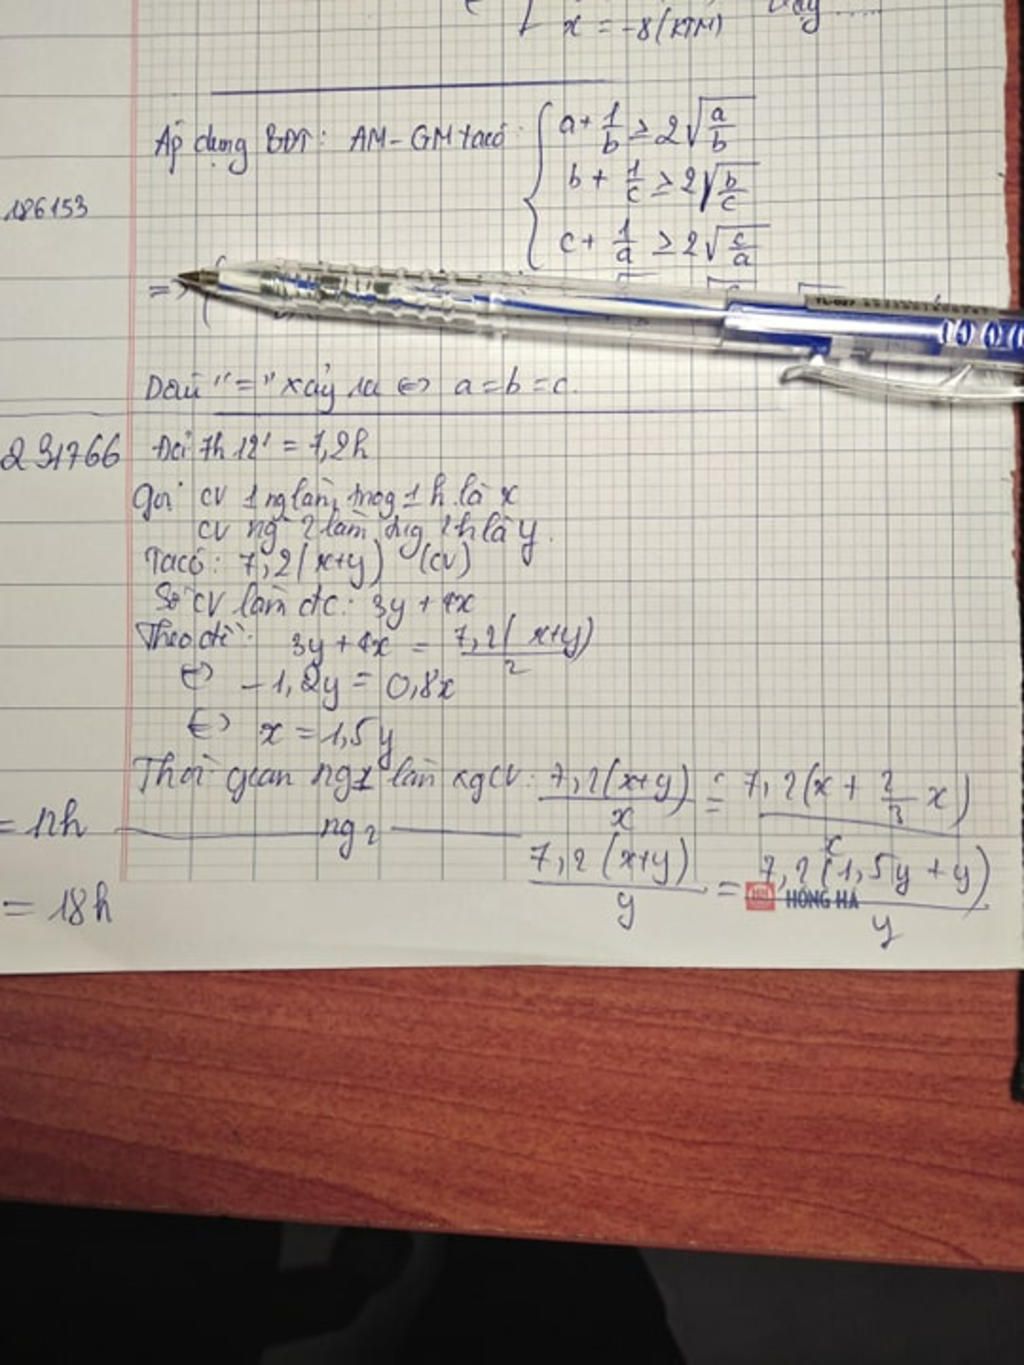 x = -8 (KTM) Vậy .....
Áp dụng BĐT: AM-GM ta có: a + 1/b ≥ 2√(a/b)
b + 1/c ≥ 2√(b/c)
186153
c + 1/a ≥ 2√(c/a)
=>
TL-027
Dấu "=" xảy ra <=> a = b = c.
231766 Đổi 7h 12' = 7,2h
Gọi cv 1 ng làm trog 1h là x
cv ng 2 làm trg 1h là y.
Ta có: 7,2(x+y) (cv)
Số cv làm đc: 3y + 4x
Theo đề: 3y + 4x = 7,2(x+y)/2
<=> -1,2y = 0,8x
<=> x = 1,5y
Thời gian ng 1 làm xg cv: 7,2(x+y)/x = 7,2(x + 2/3 x)/x
= 12h ng 2 7,2(x+y)/y = 7,2(1,5y + y)/y
HH HỒNG HÀ
= 18h